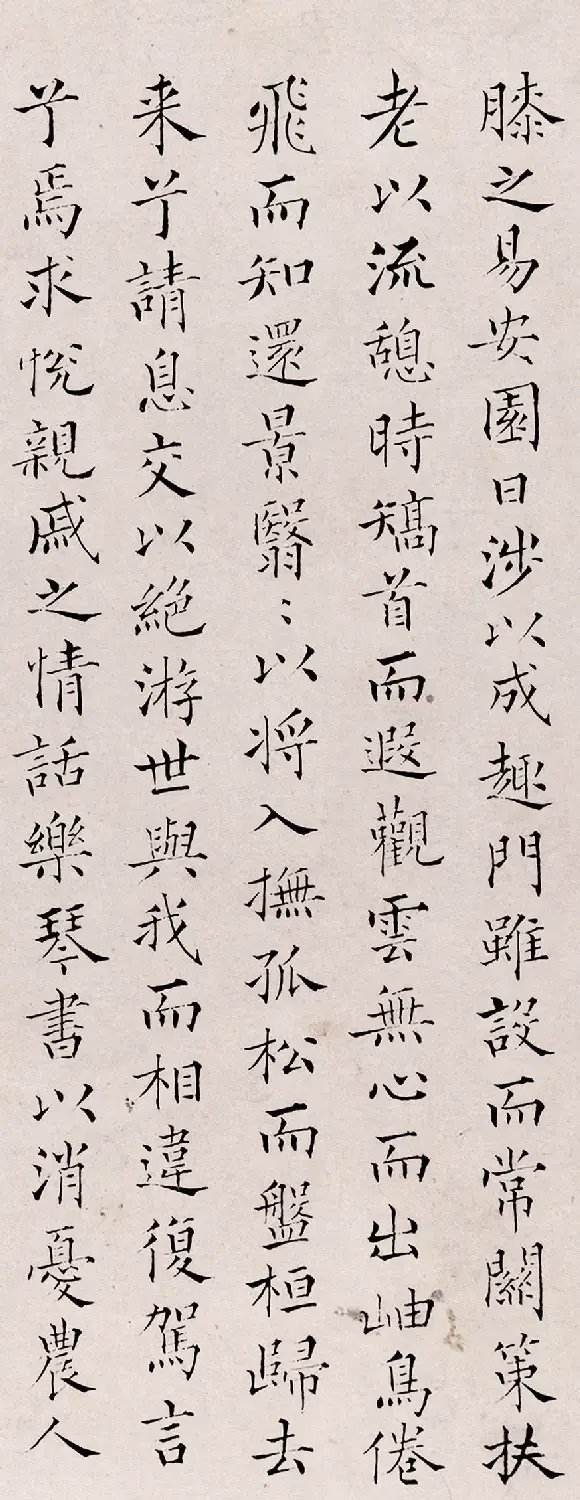 膝之易安園日涉以成趣門雖設而常關策扶
老以流憩時矯首而遐觀雲無心而出岫鳥倦
飛而知還景翳〻以將入撫孤松而盤桓歸去
来兮請息交以絕游世與我而相違復駕言
兮焉求悅親戚之情話樂琴書以消憂農人